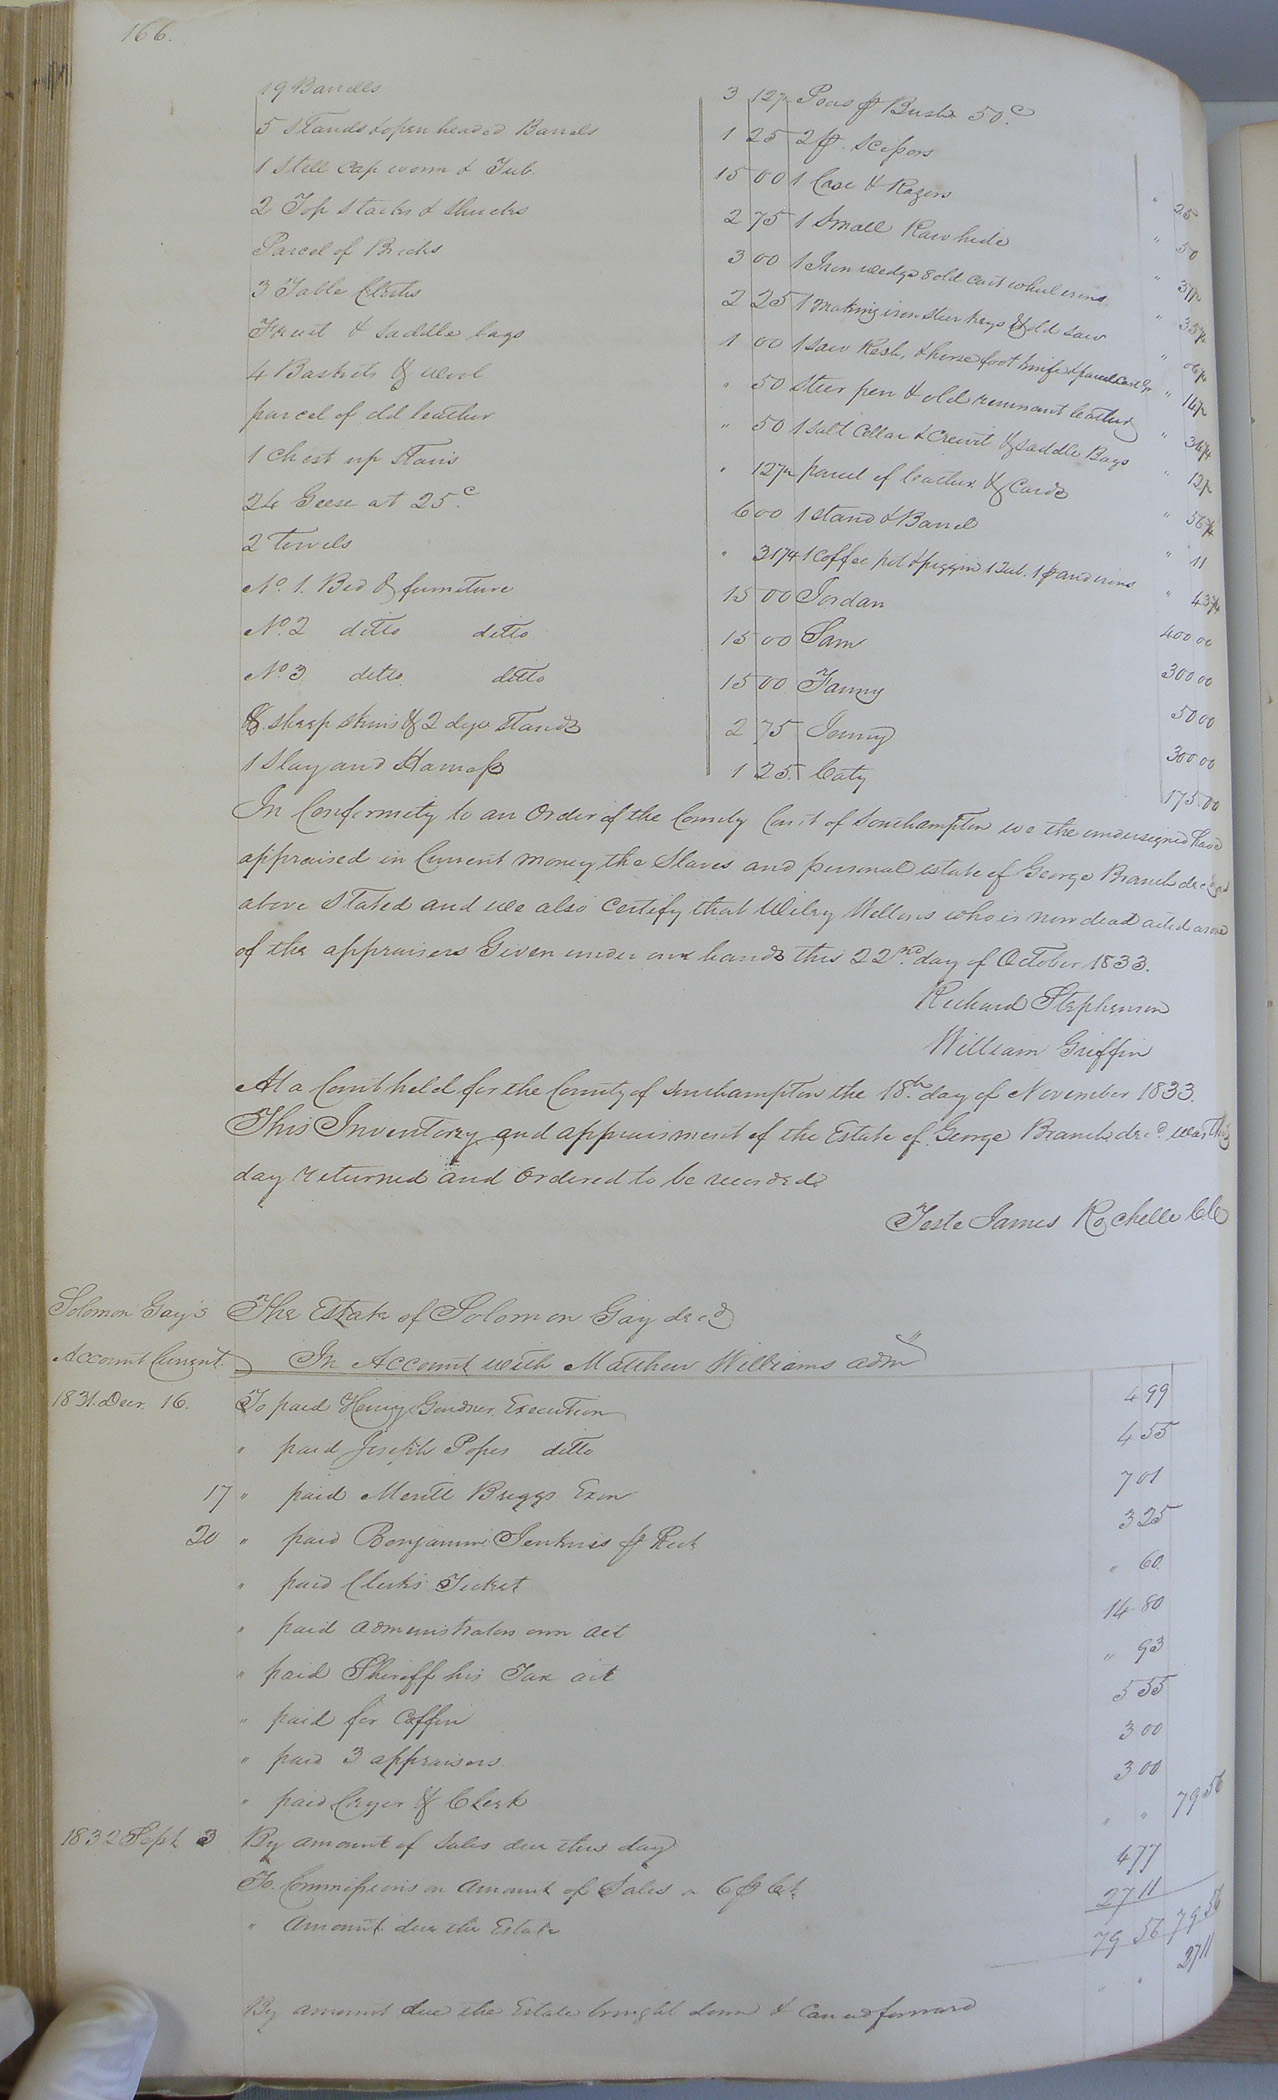 166.
19 Barrells 3 12½
5 Stands & open headed Barrels 1 25
1 Still Cap worm & Tub. 15 00
2 Top Stacks & Shucks 2 75
Parcel of Bricks 3 00
3 Table Cloths 2 25
Trunk & Saddle bags 1 00
4 Baskets & wool " 50
parcel of old leather " 50
1 Chest up Stairs " 12½
24 Geese at 25c. 6 00
2 towels " 31¼
No. 1. Bed & furniture 15 00
No. 2 ditto ditto 15 00
No 3 ditto ditto 15 00
8 sheep skins & 2 dye Stands 2 75
1 Slay and Harness 1 25
Peas pr Bush 50c. " 25
2 pr. Scissors " 50
1 Case & Razors " 37½
1 Small Raw hide
1 Iron wedge & old cart wheel irons " 06¼
1 making iron & old Saw
1 Saw Rest, & horse foot knife & parcel
Steer pen & old remnant leather
1 Salt Cellar & Crewit & Saddle Bags
parcel of leather & Cards " 56¼
1 Stand & Barrel " 11
1 Coffee pot & piggin 1 Tub. 1 pr andirons " 43¾
Jordan 400 00
Sam 300 00
Fanny 50 00
Jenny 300 00
Caty 175 00
In Conformity to an Order of the County Court of Southampton we the undersigned have
appraised in Current money the Slaves and personal estate of George Branch decd as
above Stated and we also Certify that Wiley Wellons who is now dead acted as one
of the appraisers Given under our hands this 22nd. day of October 1833.
Richard Stephenson
William Griffin
At a Court held for the County of Southampton the 18th. day of November 1833.
This Inventory and appraisment of the Estate of George Branch decd. was this
day returned and Ordered to be recorded
Teste James Rochelle CC
Solomon Gay's The Estate of Solomon Gay decd
Account Current. In Account with Matthew Williams admr
1831. Decr. 16. To paid Henry Gardner Execution 4 99
" paid Joseph Popes ditto 4 55
17 " paid Meritt Briggs Exon 7 01
20 " paid Benjamin Jenkins pr Rect 3 25
" paid Clerks Ticket " 60
" paid administrators own act 14 80
" paid Sheriff his Tax act " 93
" paid for Coffin 5 55
" paid 3 appraisers 3 00
" paid Cryer & Clerk 3 00
1832 Sept 3 By amount of Sales due this day " " 79 56
To Commissions on Amount of Sales a 6 pr Ct 4 77
" Amount due the Estate 27 11
79 56 79 56
By amount due the Estate brought down & Carried forward " " 27 11